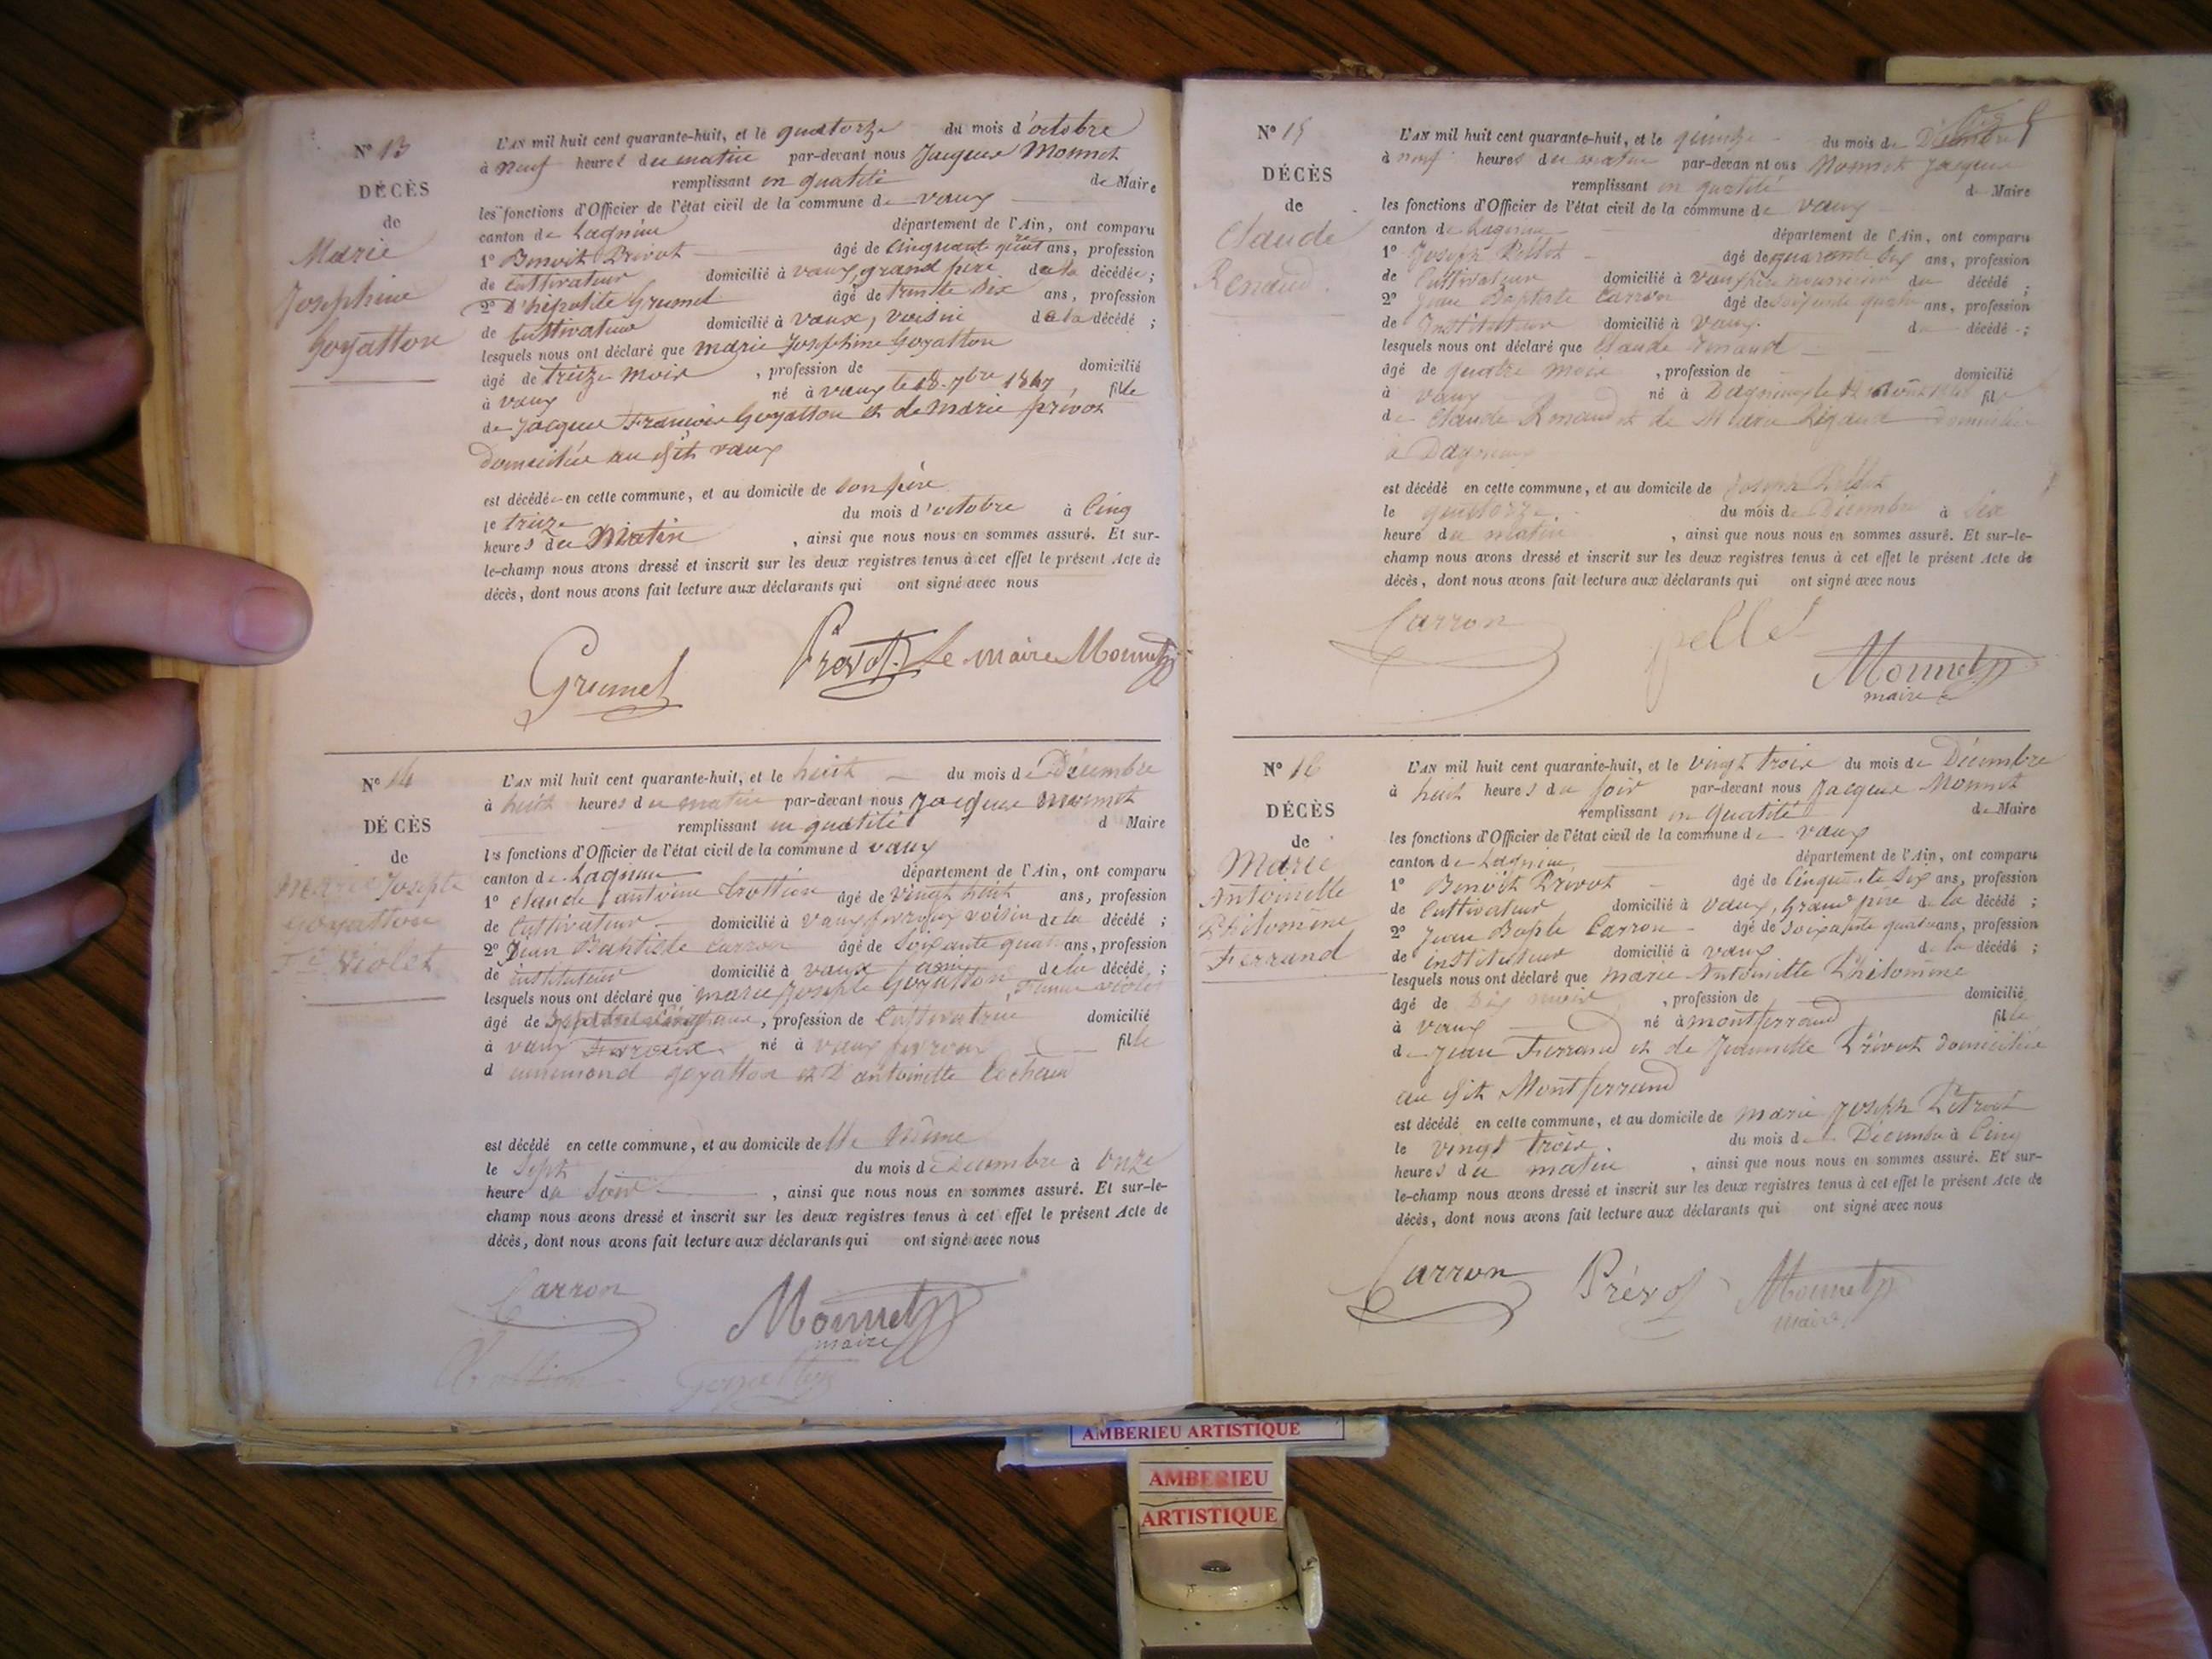 N° 13
DÉCÈS
de
Marie
Josephine
Goyatton
L'AN mil huit cent quarante-huit, et le quatorze du mois d'octobre
à neuf heures du matin par-devant nous Jacques Monnet
remplissant en qualité de Maire
les fonctions d'Officier de l'état civil de la commune de vaux
canton de Lagnieu département de l'Ain, ont comparu
1° Benoit Prévot âgé de Cinquante ans, profession
de Cultivateur domicilié à vaux, grand père de la décédée ;
2° Grumet âgé de trente six ans, profession
de Cultivateur domicilié à vaux, voisin de la décédé ;
lesquels nous ont déclaré que marie Josephine Goyatton
âgé de treize mois , profession de domicilié
à vaux né à vaux le 18 7bre 1847, fille
de Jacque François Goyatton et de Marie prévot
domiciliés au dit vaux
est décédée en cette commune, et au domicile de son père
le treize du mois d'octobre à Cinq
heures du Matin , ainsi que nous nous en sommes assuré. Et sur-
le-champ nous avons dressé et inscrit sur les deux registres tenus à cet effet le présent Acte de
décès, dont nous avons fait lecture aux déclarants qui ont signé avec nous
Grumet Prevot Le maire Monnet
N° 14
DÉCÈS
de
Marie Josephe
Goyatton
Fe Violet
L'AN mil huit cent quarante-huit, et le huit du mois de Décembre
à huit heures du matin par-devant nous Jacques Monnet
remplissant en qualité d Maire
les fonctions d'Officier de l'état civil de la commune d vaux
canton de Lagnieu département de l'Ain, ont comparu
1° Claude antoine Trottion âgé de vingt huit ans, profession
de Cultivateur domicilié à vaux fevroux voisin de la décédé ;
2° Jean Baptiste Carron âgé de soixante quatre ans, profession
de instituteur domicilié à vaux ami de la décédé ;
lesquels nous ont déclaré que marie Josephe Goyatton, Femme violet
âgé de , profession de Cultivatrice domicilié
à vaux Fevroux né à vaux fevroux fille
d annemond goyatton et D'antoinette
est décédé en cette commune, et au domicile de
le Sept du mois de Décembre à Onze
heure du Soir , ainsi que nous nous en sommes assuré. Et sur-le-
champ nous avons dressé et inscrit sur les deux registres tenus à cet effet le présent Acte de
décès, dont nous avons fait lecture aux déclarants qui ont signé avec nous
Carron Monnet
maire
N° 15
DÉCÈS
de
Claude
Renaud.
L'AN mil huit cent quarante-huit, et le quinze du mois de Décembre
à neuf heures du matin par-devan nt ous Monnet Jacques
remplissant en qualité d Maire
les fonctions d'Officier de l'état civil de la commune de vaux
canton de Lagnieu département de l'Ain, ont comparu
1° Joseph Pellet âgé de quarante six ans, profession
de Cultivateur domicilié à vaux père nourricier du décédé ;
2° Jean Baptiste Carron âgé de soixante quatre ans, profession
de Instituteur domicilié à vaux. d décédé ;
lesquels nous ont déclaré que Claude Renaud
âgé de quatre mois , profession de domicilié
à vaux né à Dagneux le fil
de Claude Renaud et de domiciliés
à Dagneux
est décédé en cette commune, et au domicile de Joseph Pellet
le quatorze du mois de Décembre à Six
heure du matin , ainsi que nous nous en sommes assuré. Et sur-le-
champ nous avons dressé et inscrit sur les deux registres tenus à cet effet le présent Acte de
décès, dont nous avons fait lecture aux déclarants qui ont signé avec nous
Carron pellet Monnet
maire
N° 16
DÉCÈS
de
Marie
Antoinette
Philomène
Ferrand
L'AN mil huit cent quarante-huit, et le vingt trois du mois de Décembre
à huit heures du soir par-devant nous Jacques Monnet
remplissant en qualité de Maire
les fonctions d'Officier de l'état civil de la commune de vaux
canton de Lagnieu département de l'Ain, ont comparu
1° Benoît Prévot âgé de Cinquante Six ans, profession
de Cultivateur domicilié à vaux, Grand père de la décédé ;
2° Jean Bapte Carron âgé de soixante quatre ans, profession
de instituteur domicilié à vaux de la décédé ;
lesquels nous ont déclaré que marie Antoinette Philomène
âgé de Dix mois , profession de domicilié
à vaux né à montferrand fille
de Jean Ferrand et de Jeannette Prévot domiciliés
au dit Montferrand
est décédé en cette commune, et au domicile de marie Joseph
le vingt trois du mois de Décembre à Cinq
heures du matin , ainsi que nous nous en sommes assuré. Et sur-
le-champ nous avons dressé et inscrit sur les deux registres tenus à cet effet le présent Acte de
décès, dont nous avons fait lecture aux déclarants qui ont signé avec nous
Carron Prévot Monnet
maire
AMBERIEU ARTISTIQUE
AMBERIEU
ARTISTIQUE